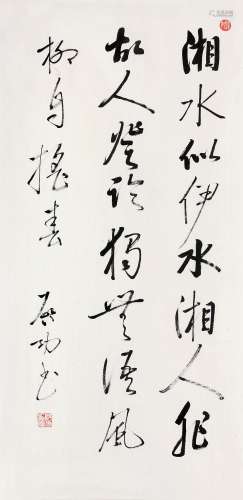 湘水似伊水湘人非
故人登临独无语风
柳自摇春 启功书